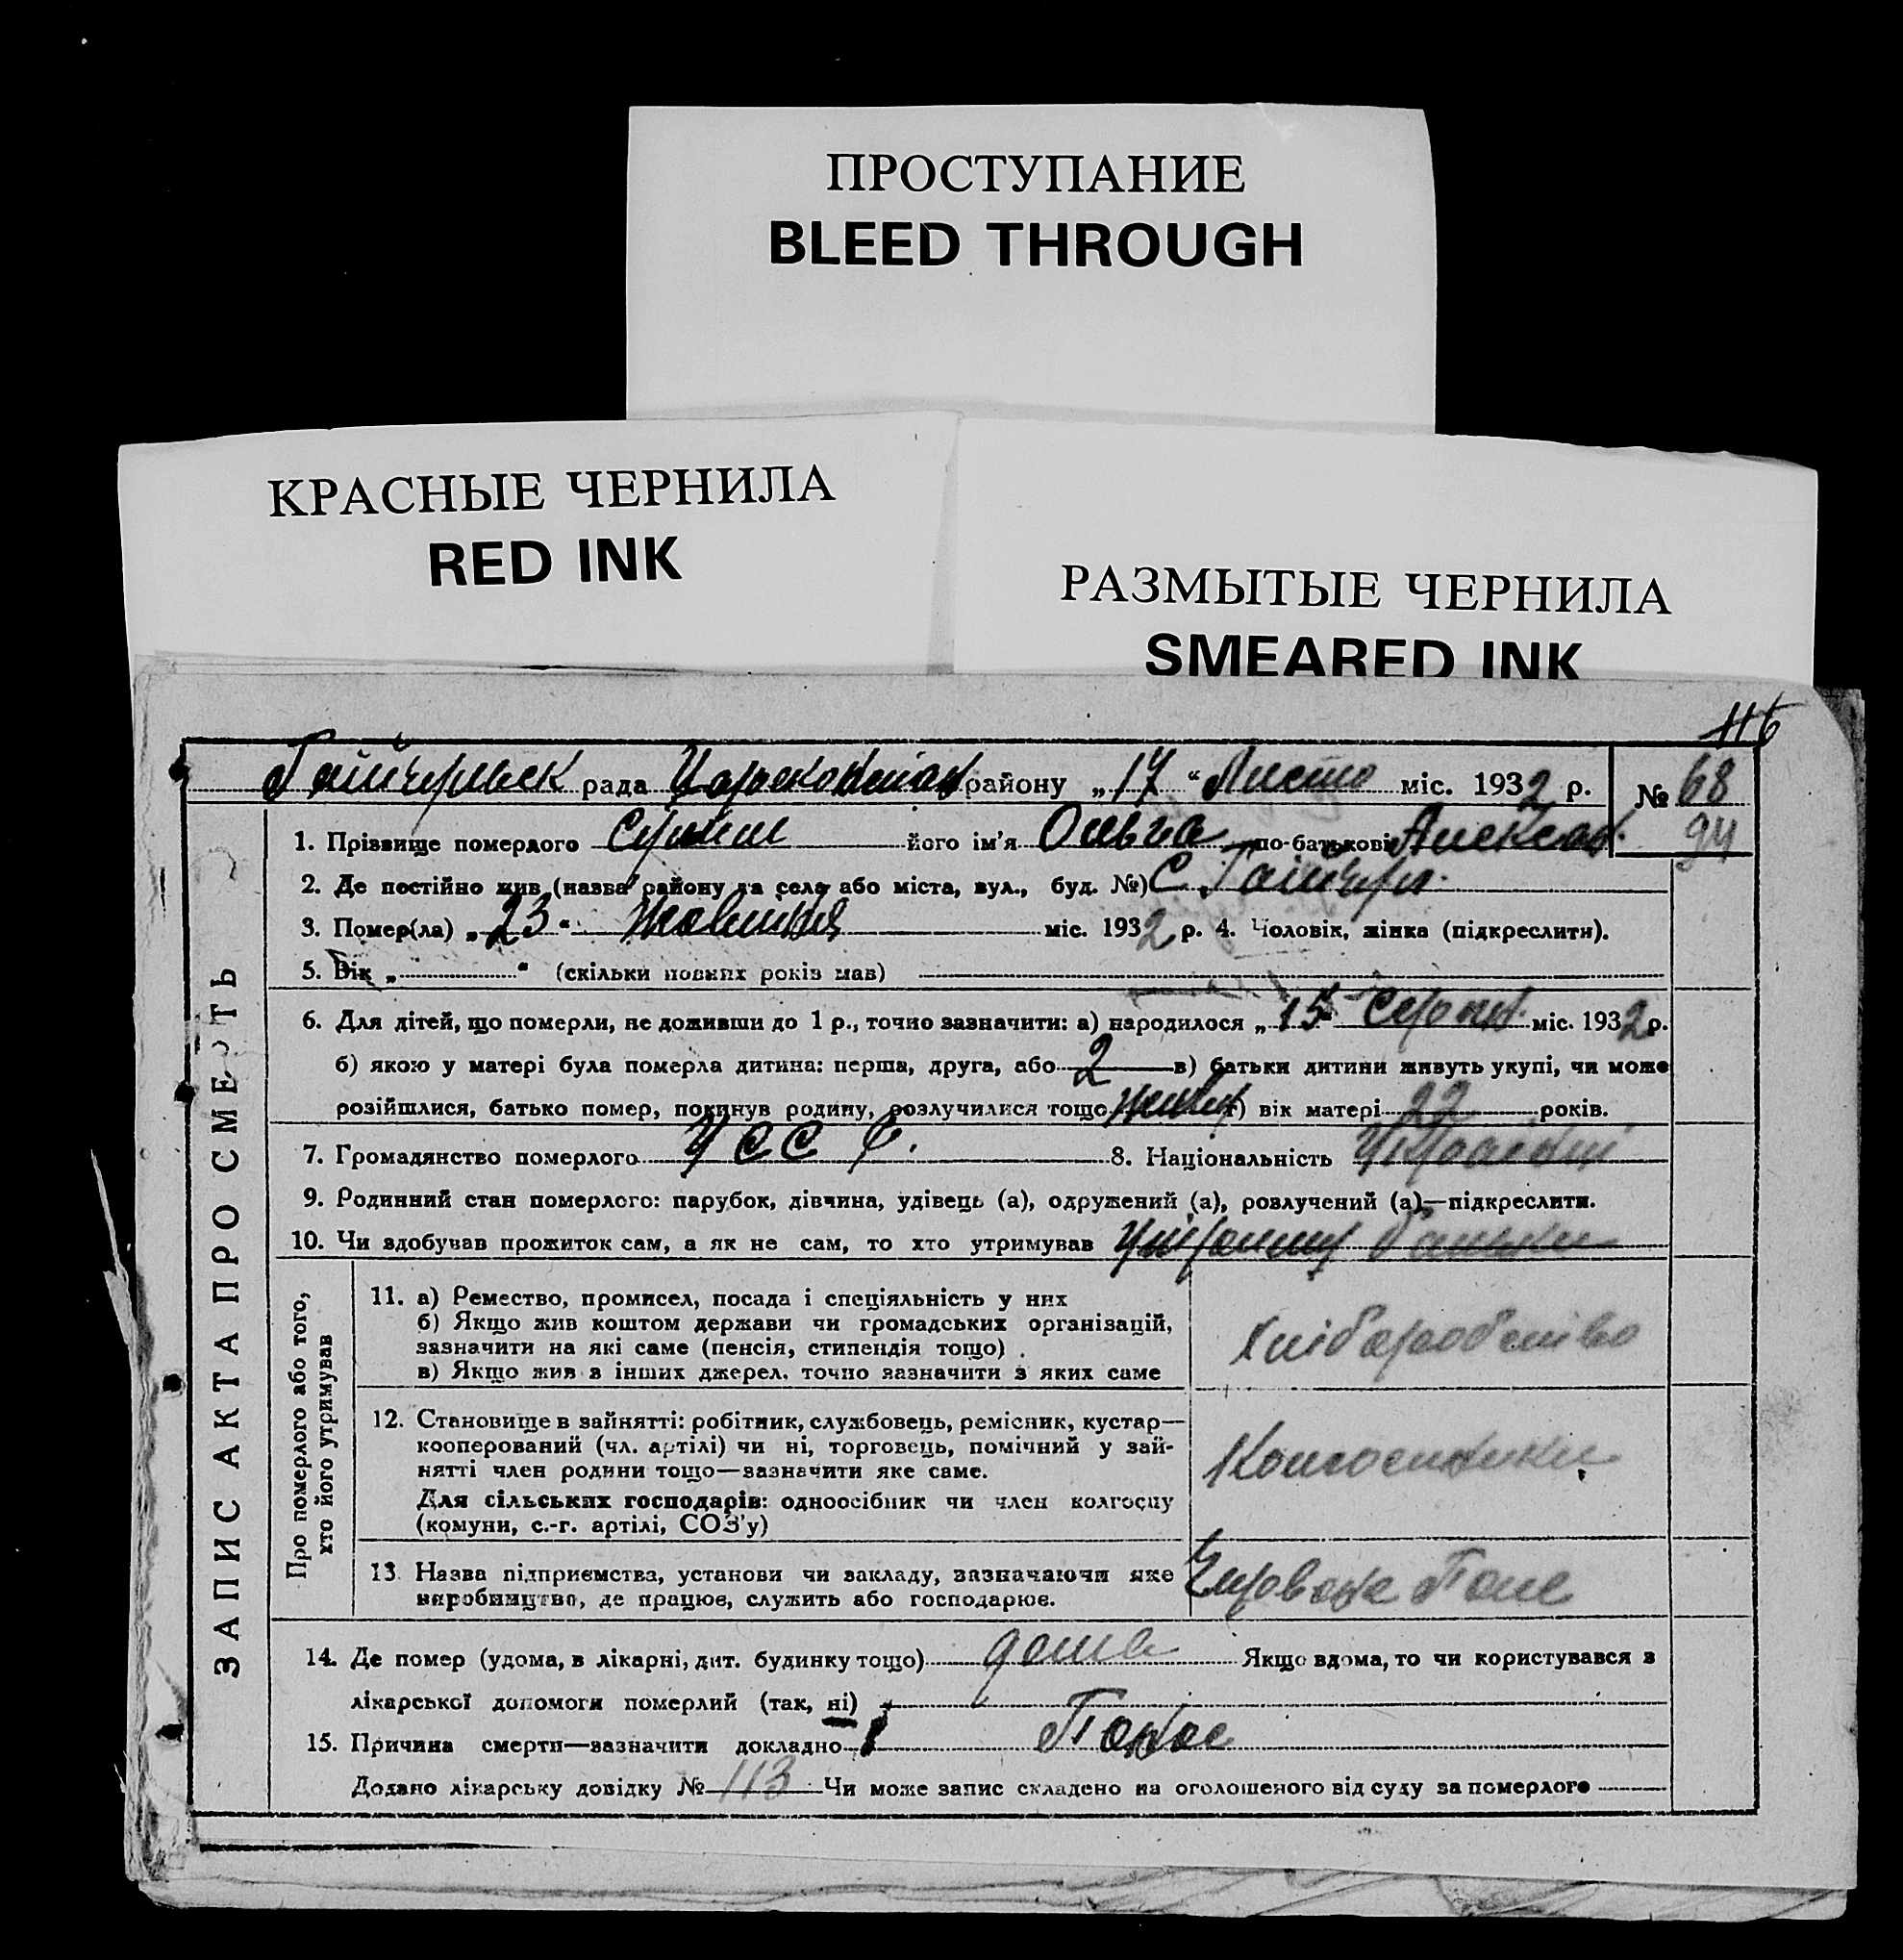 ПРОСТУПАНИЕ
BLEED THROUGH
КРАСНЫЕ ЧЕРНИЛА
RED INK
РАЗМЫТЫЕ ЧЕРНИЛА
SMEARED INK
116
рада району „17“ Листо міс. 1932 р. № 68
94
ЗАПИС АКТА ПРО СМЕРТЬ
1. Прізвище померлого його ім'я Ольга по-батькові Александ.
2. Де постійно жив (назва району та села або міста, вул., буд. №) С.
3. Помер(ла) „23“ Жовтня міс. 1932 р. 4. Чоловік, жінка (підкреслити).
5. Вік „ “ (скільки повних років мав)
6. Для дітей, що померли, не доживши до 1 р., точно зазначити: а) народилося „15 Серпн. міс. 1932 р.
б) якою у матері була померла дитина: перша, друга, або 2 в) батьки дитини живуть укупі, чи може
розійшлися, батько помер, покинув родину, розлучилися тощо г) вік матері 22 років.
7. Громадянство померлого УССР. 8. Національність
9. Родинний стан померлого: парубок, дівчина, удівець (а), одружений (а), розлучений (а)—підкреслити.
10. Чи здобував прожиток сам, а як не сам, то хто утримував батьки
Про померлого або того,
хто його утримував
11. а) Ремество, промисел, посада і спеціяльність у них
б) Якщо жив коштом держави чи громадських організацій,
зазначити на які саме (пенсія, стипендія тощо).
в) Якщо жив з інших джерел, точно зазначити з яких саме
хліборобство
12. Становище в зайнятті: робітник, службовець, ремісник, кустар—
кооперований (чл. артілі) чи ні, торговець, помічний у зай-
нятті член родини тощо—зазначити яке саме.
Для сільських господарів: одноосібник чи член колгоспу
(комуни, с.-г. артілі, СОЗ'у)
Колгоспники
13. Назва підприємства, установи чи закладу, зазначаючи яке
виробництво, де працює, служить або господарює.
Червоне Поле
14. Де помер (удома, в лікарні, дит. будинку тощо) дома Якщо вдома, то чи користувався з
лікарської допомоги померлий (так, ні)
15. Причина смерти—зазначити докладно Понос
Додано лікарську довідку № 113 Чи може запис складено на оголошеного від суду за померлого